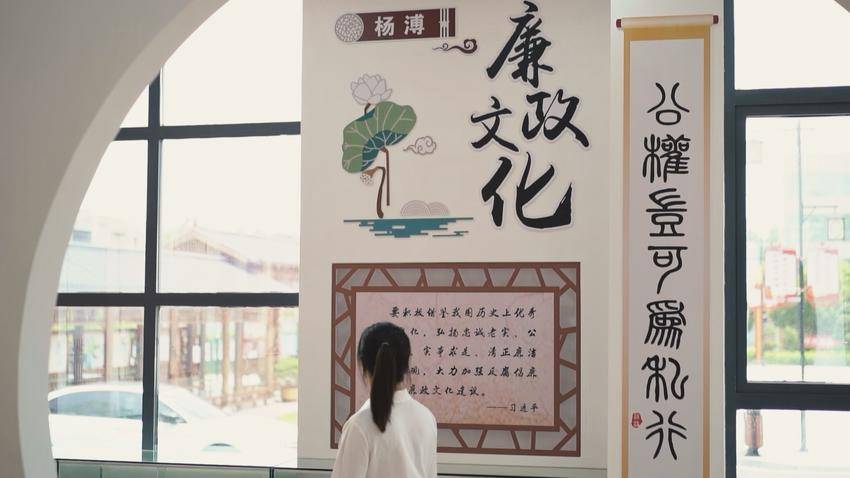 杨溥
廉政文化
要积极借鉴我国历史上优秀
化，弘扬忠诚老实、公
实事求是、清正廉洁
，大力加强反腐倡廉
廉政文化建设。
——习近平
公權豈可爲私行